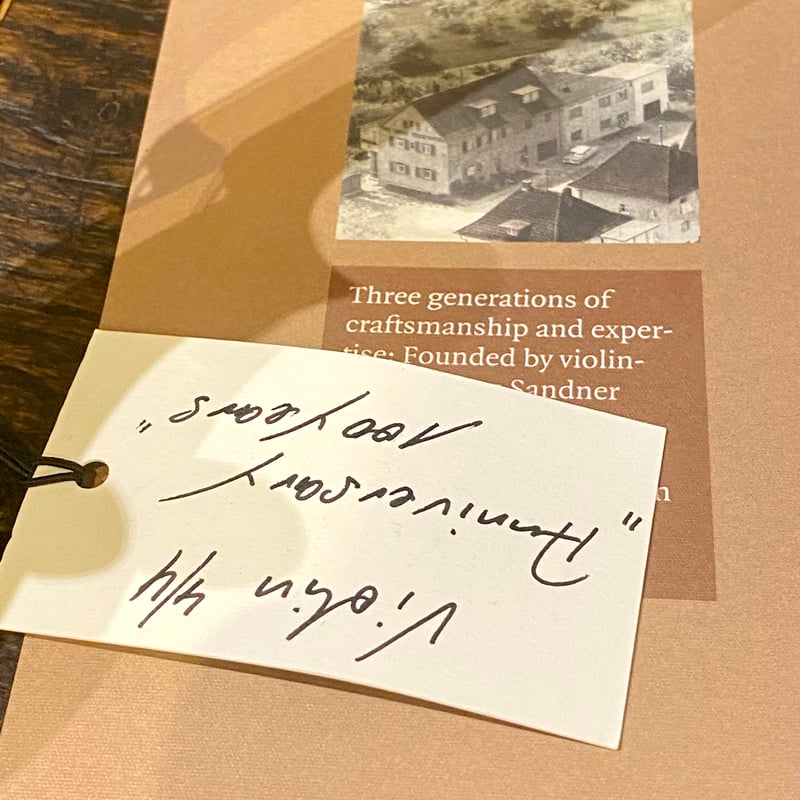 Three generations of
craftsmanship and exper-
tise: Founded by violin-
Sandner
Violin 4/4
"Anniversary
100 years"